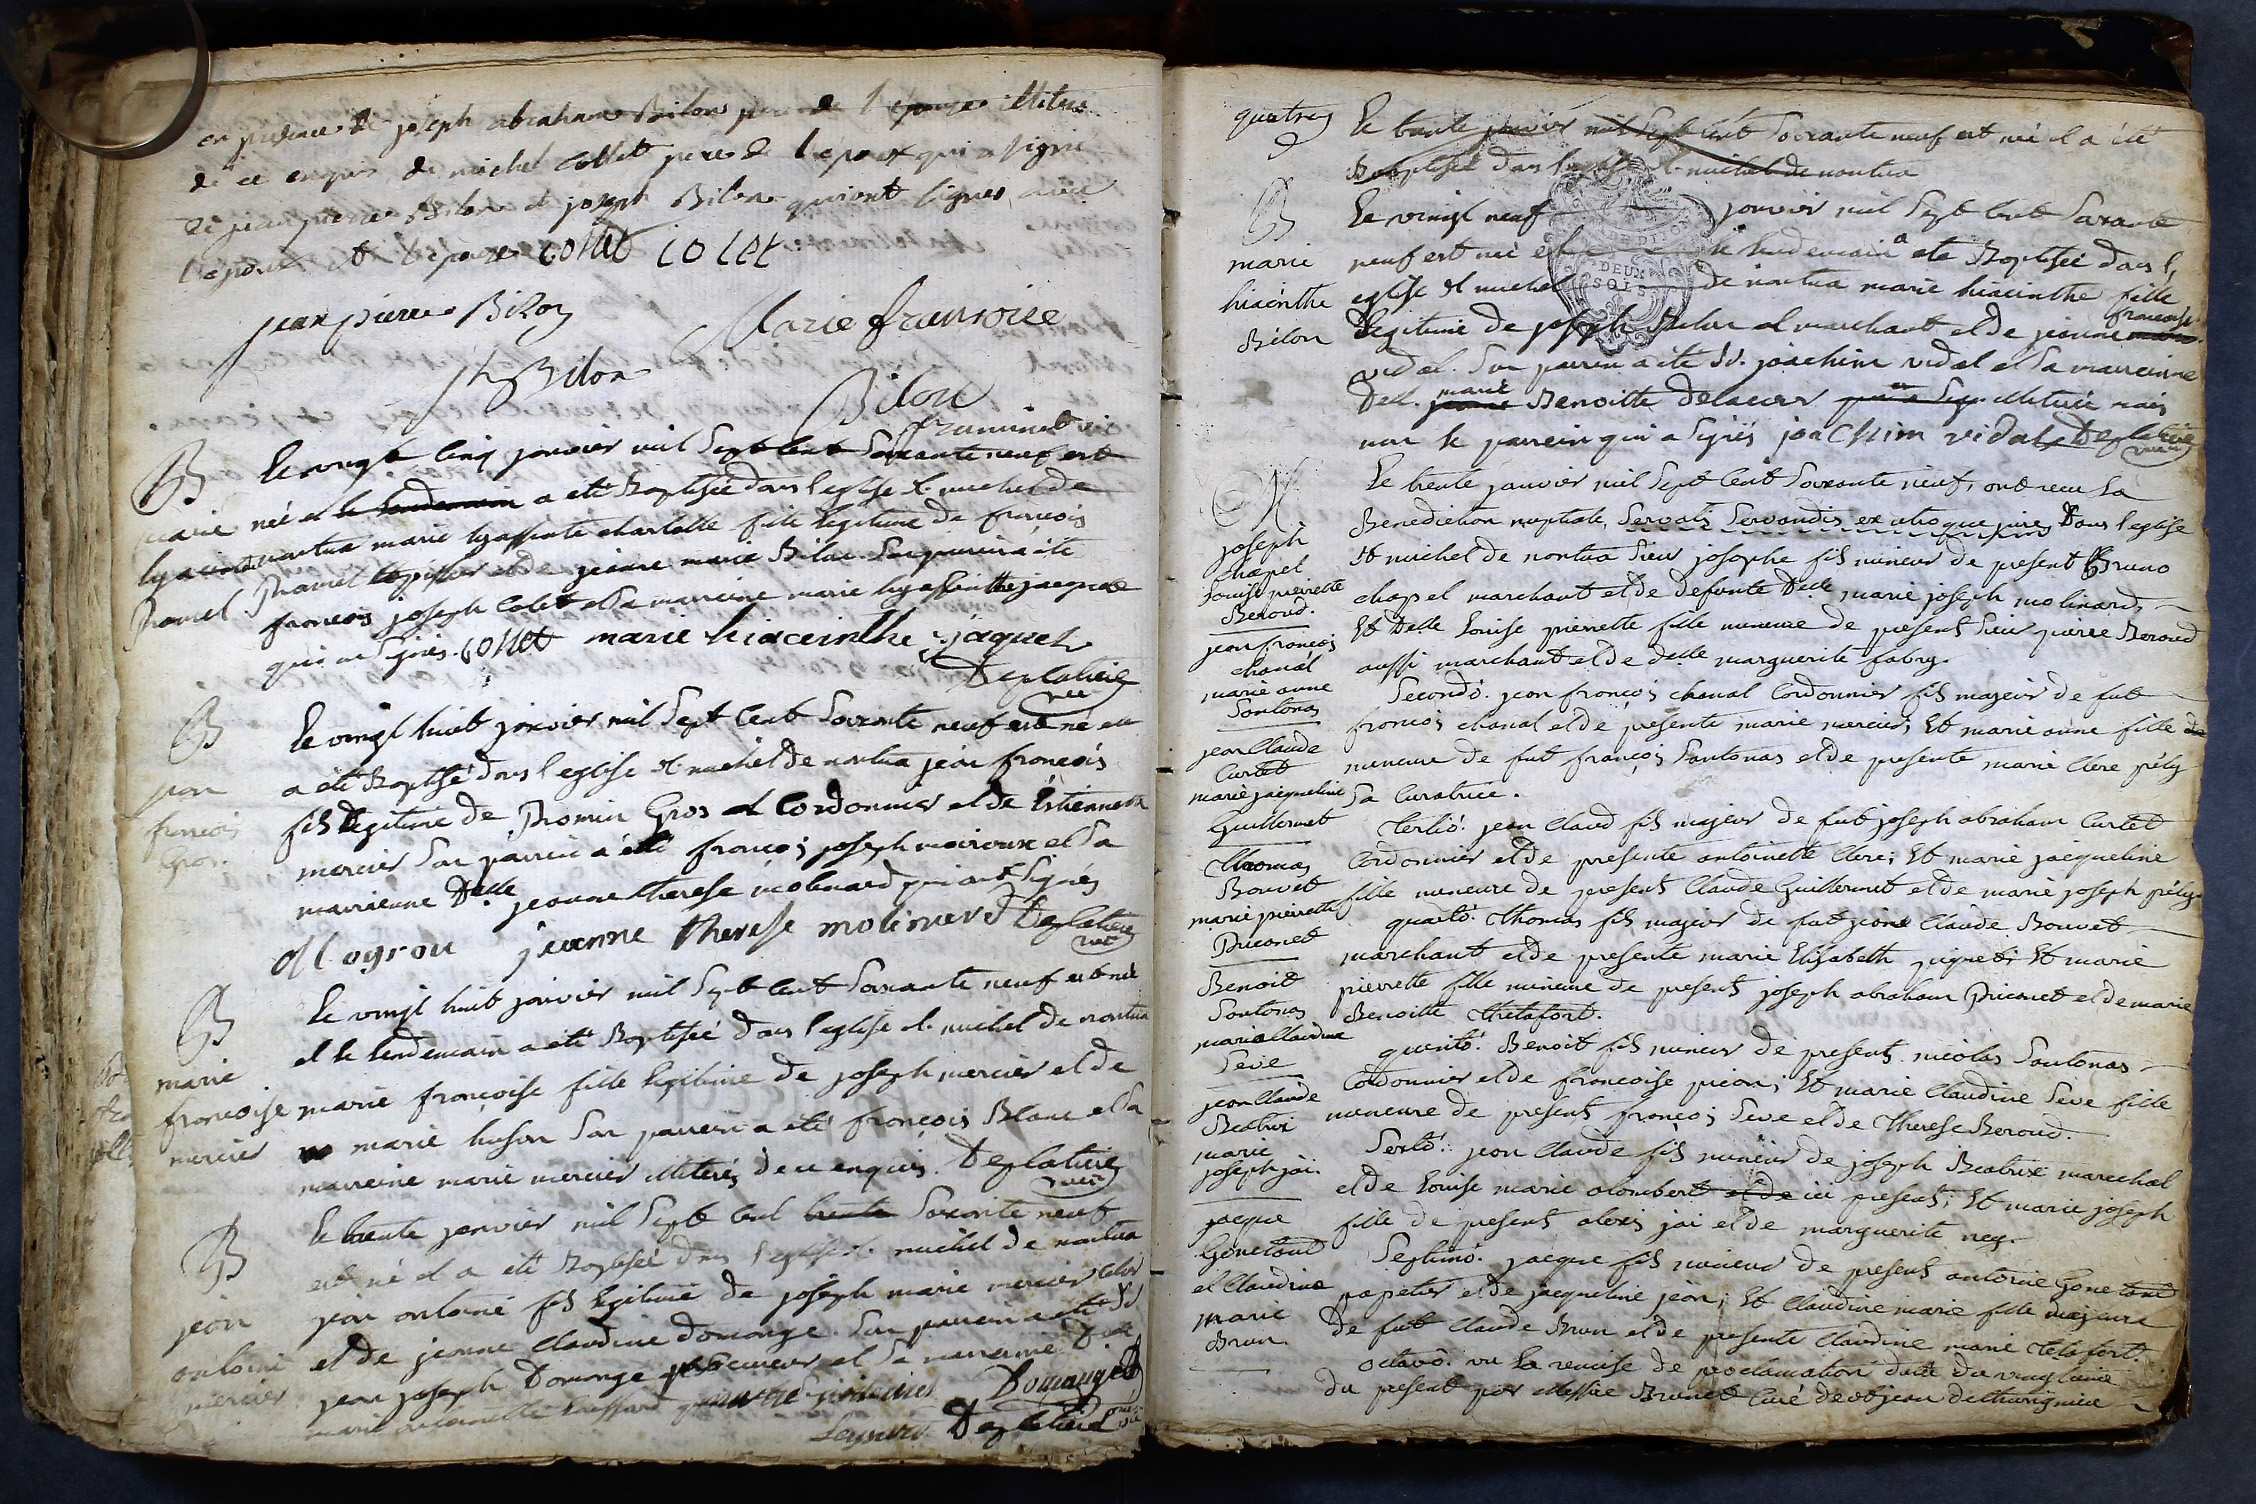 en presence de joseph abraham Bilon pere de l'epouse illiteré
de ce enquis de michel Collet pere de l'epoux qui a signé
de jean pierre Bilon et joseph Bilon qui ont signes avec
l'epoux et l'epouse collet colet
jean pierre Bilon Marie francoise
jh Bilon Bilon
B
marie
hyacinthe
Pramel
Le vingt cinq janvier mil sept cent soixante neuf est
née et le lendemain a été Baptisée dans l'eglise st michel de
nantua marie hyassinte charlotte fille legitime de francois
Pramel et de jeanne marie Bilon. son parrin a été
francois joseph Colet et sa marreine marie hyassinthe jacquet
qui ont signés. collet marie hiaceinthe jaquet
Deplatiere
vic
B
jean
francois
Gros.
Le vingt huit janvier mil sept cent soixante neuf est né et
a été Baptisé dans l'eglise st michel de nantua jean francois
fils legitime de Promin Gros et Cordonnier et de Etiennette
mercier son parrin a été francois joseph moiroux et sa
marrienne Delle jeanne therese molinard qui ont signes
jeanne therese molinard Deplatiere
vic
B
marie
francoise
mercier
Le vingt huit janvier mil sept cent soixante neuf est née
et le lendemain a été Baptisée dans l'eglise st michel de nantua
marie francoise fille legitime de joseph mercier et de
marie huson son parrein a été francois Blanc et sa
marreine marie mercier illiterés de ce enquis. Deplatiere
vic
B
jean
antoine
mercier
Le trente janvier mil sept cent trente soixante neuf
est né et a été Baptisé dans l'eglise st michel de nantua
jean antoine fils legitime de joseph marie mercier
et de jeanne Claudine domange. son parrein a été sr
jean joseph Domange procureur et sa marreine Delle
marie antoinette Domange
Deplatiere vic
quatre
Le trente janvier mil sept cent soixante neuf est né et a été
Baptisée dans l'eglise st michel de nantua
B
marie
hiacinthe
Bilon
Le vingt neuf janvier mil sept cent soixante
neuf est née et le lendemain a été Baptisée dans l'
eglise st michel de nantua marie hiacinthe fille
legitime de joseph Bilon et marchant et de jeanne marie francoise
vidal. son parrein a été sr. joachim vidal et sa marreinne
Delle. jeanne marie Benoitte delacour illiterée mais
non le parrein qui a signés joachim vidal Deplatiere
vic
DEUX SOLS
M
joseph
chapel
Louise pierrette
Beroud.
jean francois
chanal
marie anne
Santonas
jean Claude
Curtet
marie jacqueline
Guillermet
Thomas
Bouvet
marie pierrette
Priconet
Benoit
Santonas
marie Claudine
Seve
jean Claude
Beatrix
marie
joseph jai.
jacque
Gonetand
et Claudine
marie
Brun.
Le trente janvier mil sept cent soixante neuf, ont recu la
Benediction nuptiale, servatis servandis ex utroque jure, dans l'eglise
st michel de nantua sieur josephe fils mineur de present Bruno
chapel marchant et de defunte Delle marie joseph molinard,
Et Delle Louise pierrette fille mineure de present sieur pierre Beroud
aussi marchant et de delle marguerite fabry.
Secondò. jean francois chanal Cordonnier fils majeur de fut
francois chanal et de presente marie mercier; Et marie anne fille
mineure de fut francois Santonas et de presente marie Clere pely
sa Curatrice.
Tertiò. jean Claud fils majeur de fut joseph abraham Curtet
Cordonnier et de presente antoinette Clere; Et marie jacqueline
fille mineure de present Claude Guillermet et de marie joseph pely.
quartò. Thomas fils majeur de fut Claude Bouvet
marchant et de presente marie Elisabeth piquet; Et marie
pierrette fille mineure de present joseph abraham Priconet et de marie
Benoitte Thetafort.
quintò. Benoit fils mineur de present nicolas Santonas
Cordonnier et de francoise picon; Et marie Claudine Seve fille
mineure de present francois Seve et de Therese Beroud.
Sextò. jean Claude fils mineur de joseph Beatrix marechal
et de Louise marie alombert et de ici present; Et marie joseph
fille de present alexis jai et de marguerite ney.
Septimò. jacque fils mineur de present antoine Gonetand
papetier et de jacqueline jean; Et Claudine marie fille majeure
de fut Claude Brun et de presente Claudine marie Tetafort.
octavò. vu la remise de proclamation datée du vingtieme
du present par Messire Brunet Curé de st jean